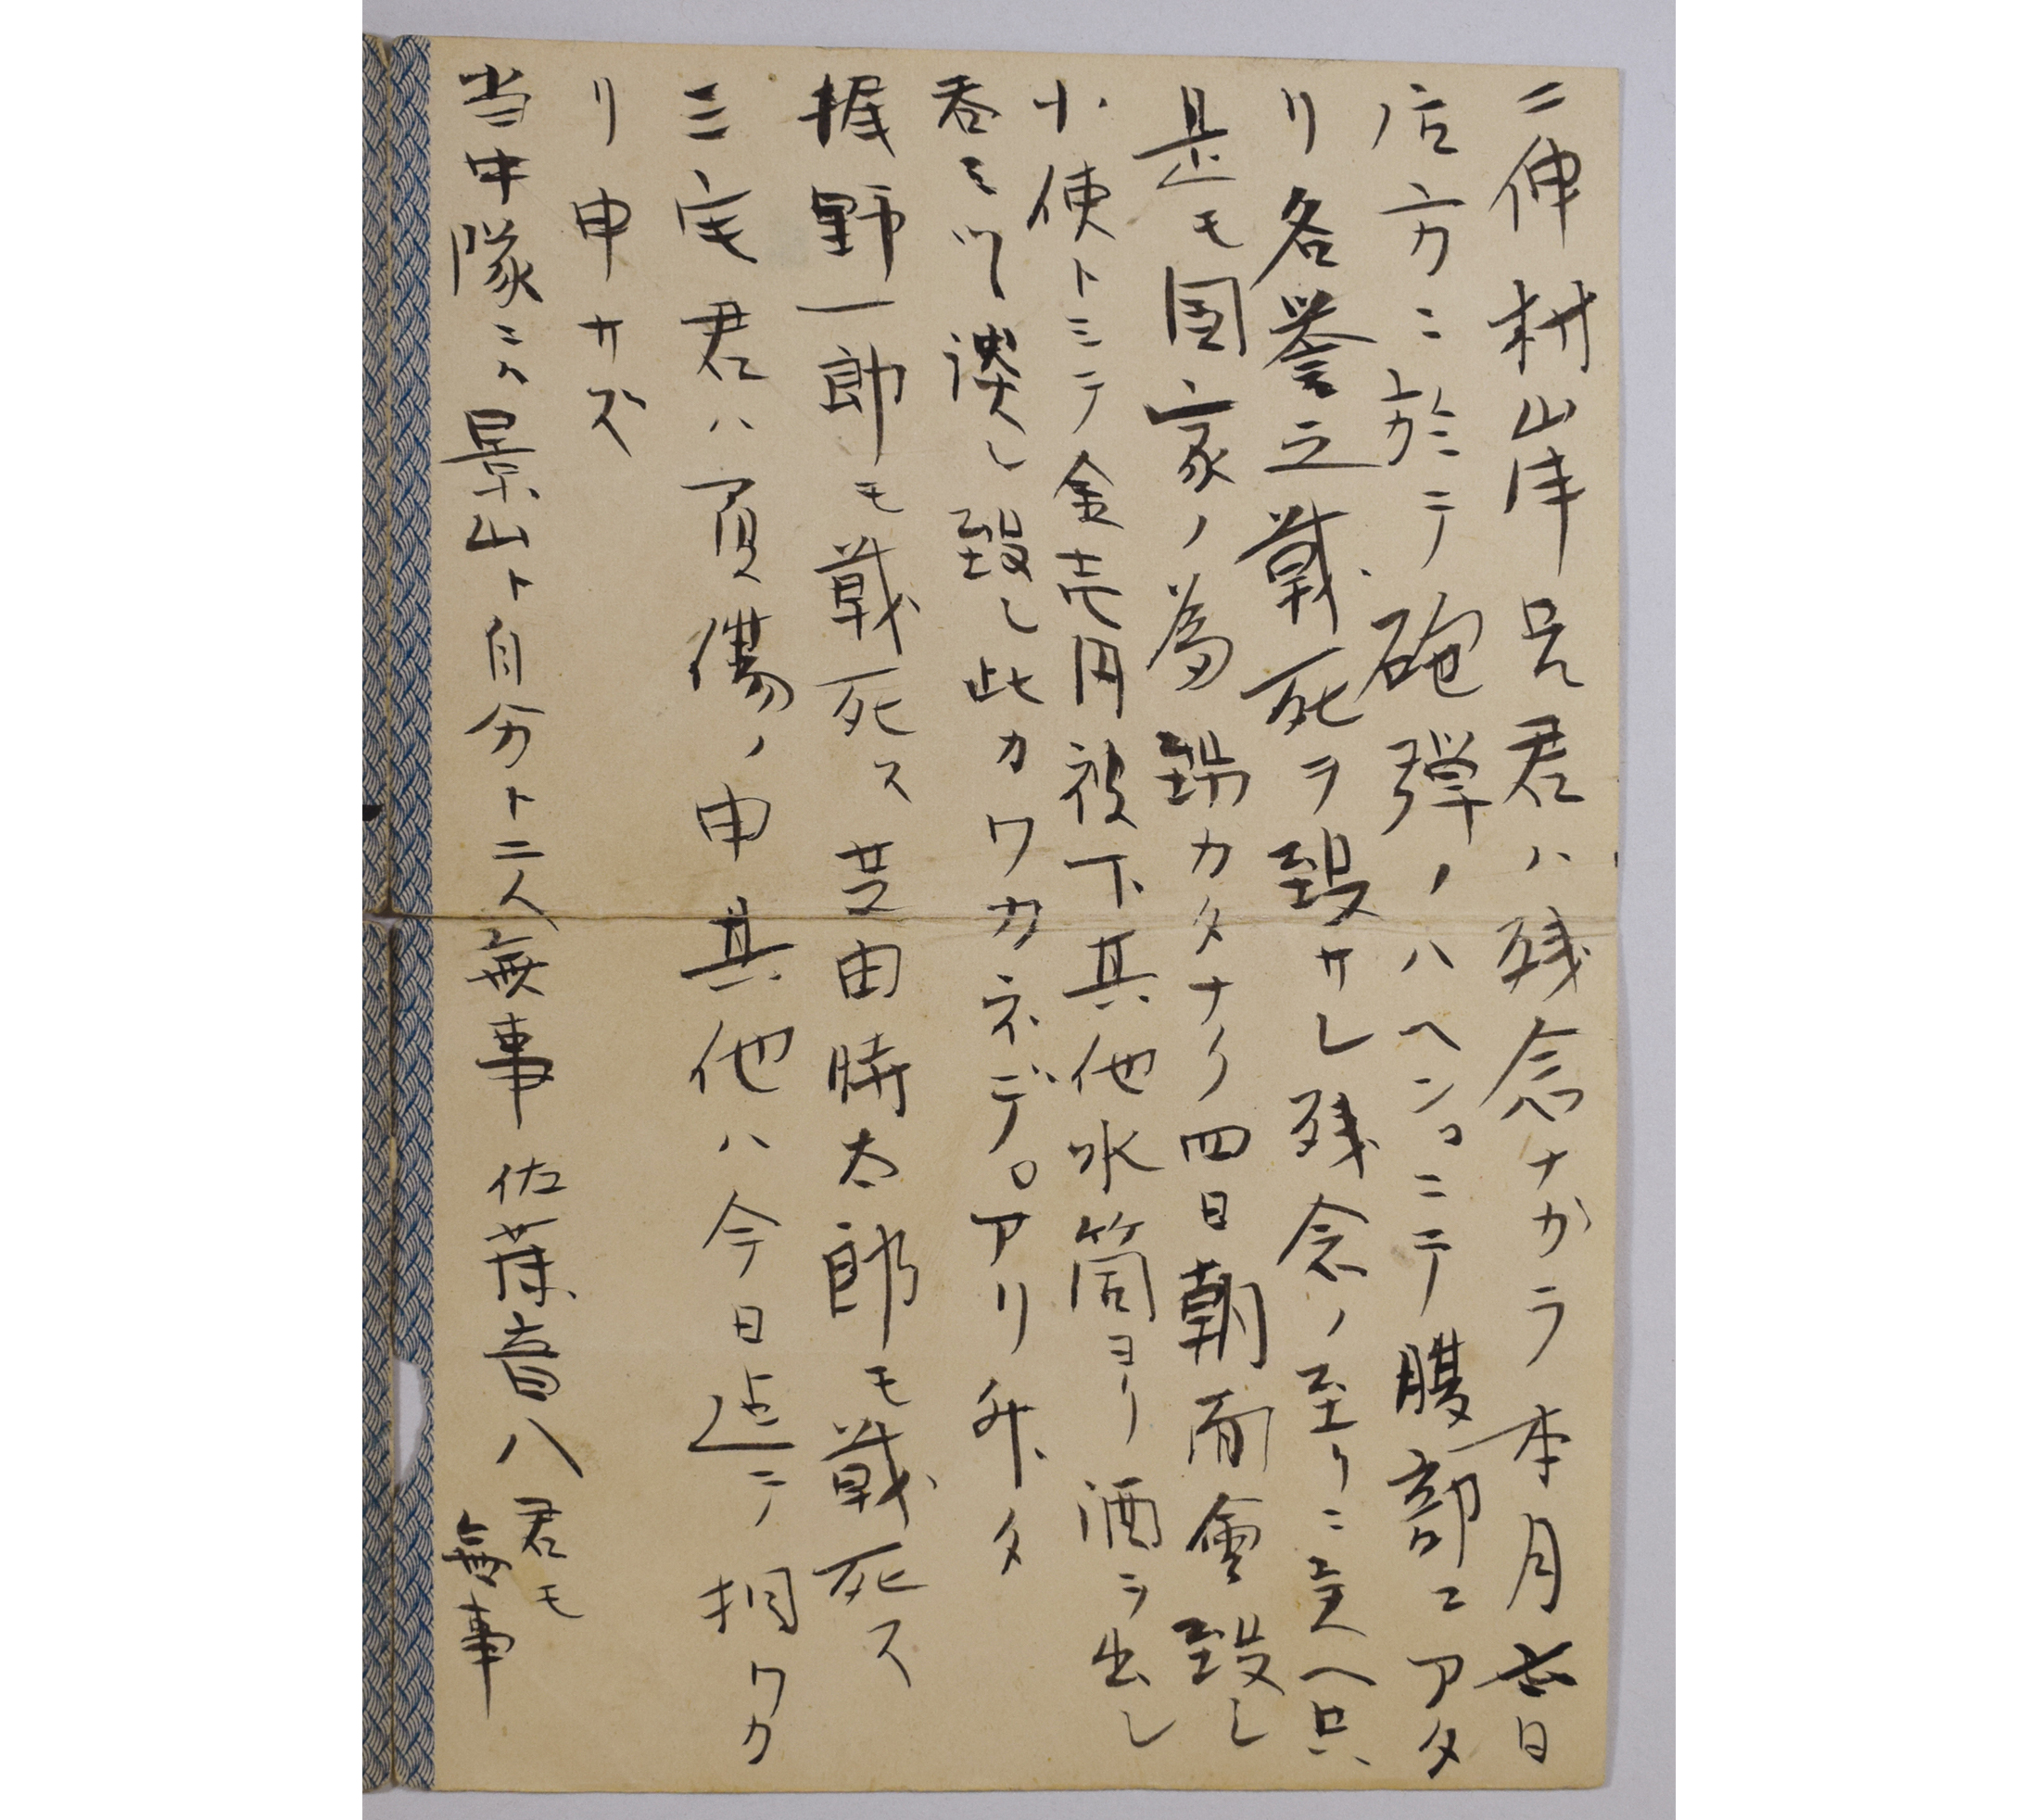 ニ伸 村山岸兄君ハ残念ナカラ本月七日
ノ方ニ於テ砲弾ノハヘンヨニテ腹部ニアタ
リ名誉之戦死ヲ致サレ残念ノ至リニ候ヘ共
是モ国家ノ為致カタナク四日朝面會致し
小使トミテ金壱円被下其他水筒ヨリ酒ヲ出し
呑ミツヽ談し致し此カワカネデ。アリ升タ
握野一郎モ戦死ス 芝田時太郎モ戦死ス
三宅君ハ負傷ノ由其他ハ今日迠テ相ワカ
リ申サズ
当中隊ニテ景山ト自分ト二人無事 佐葉音八君モ無事